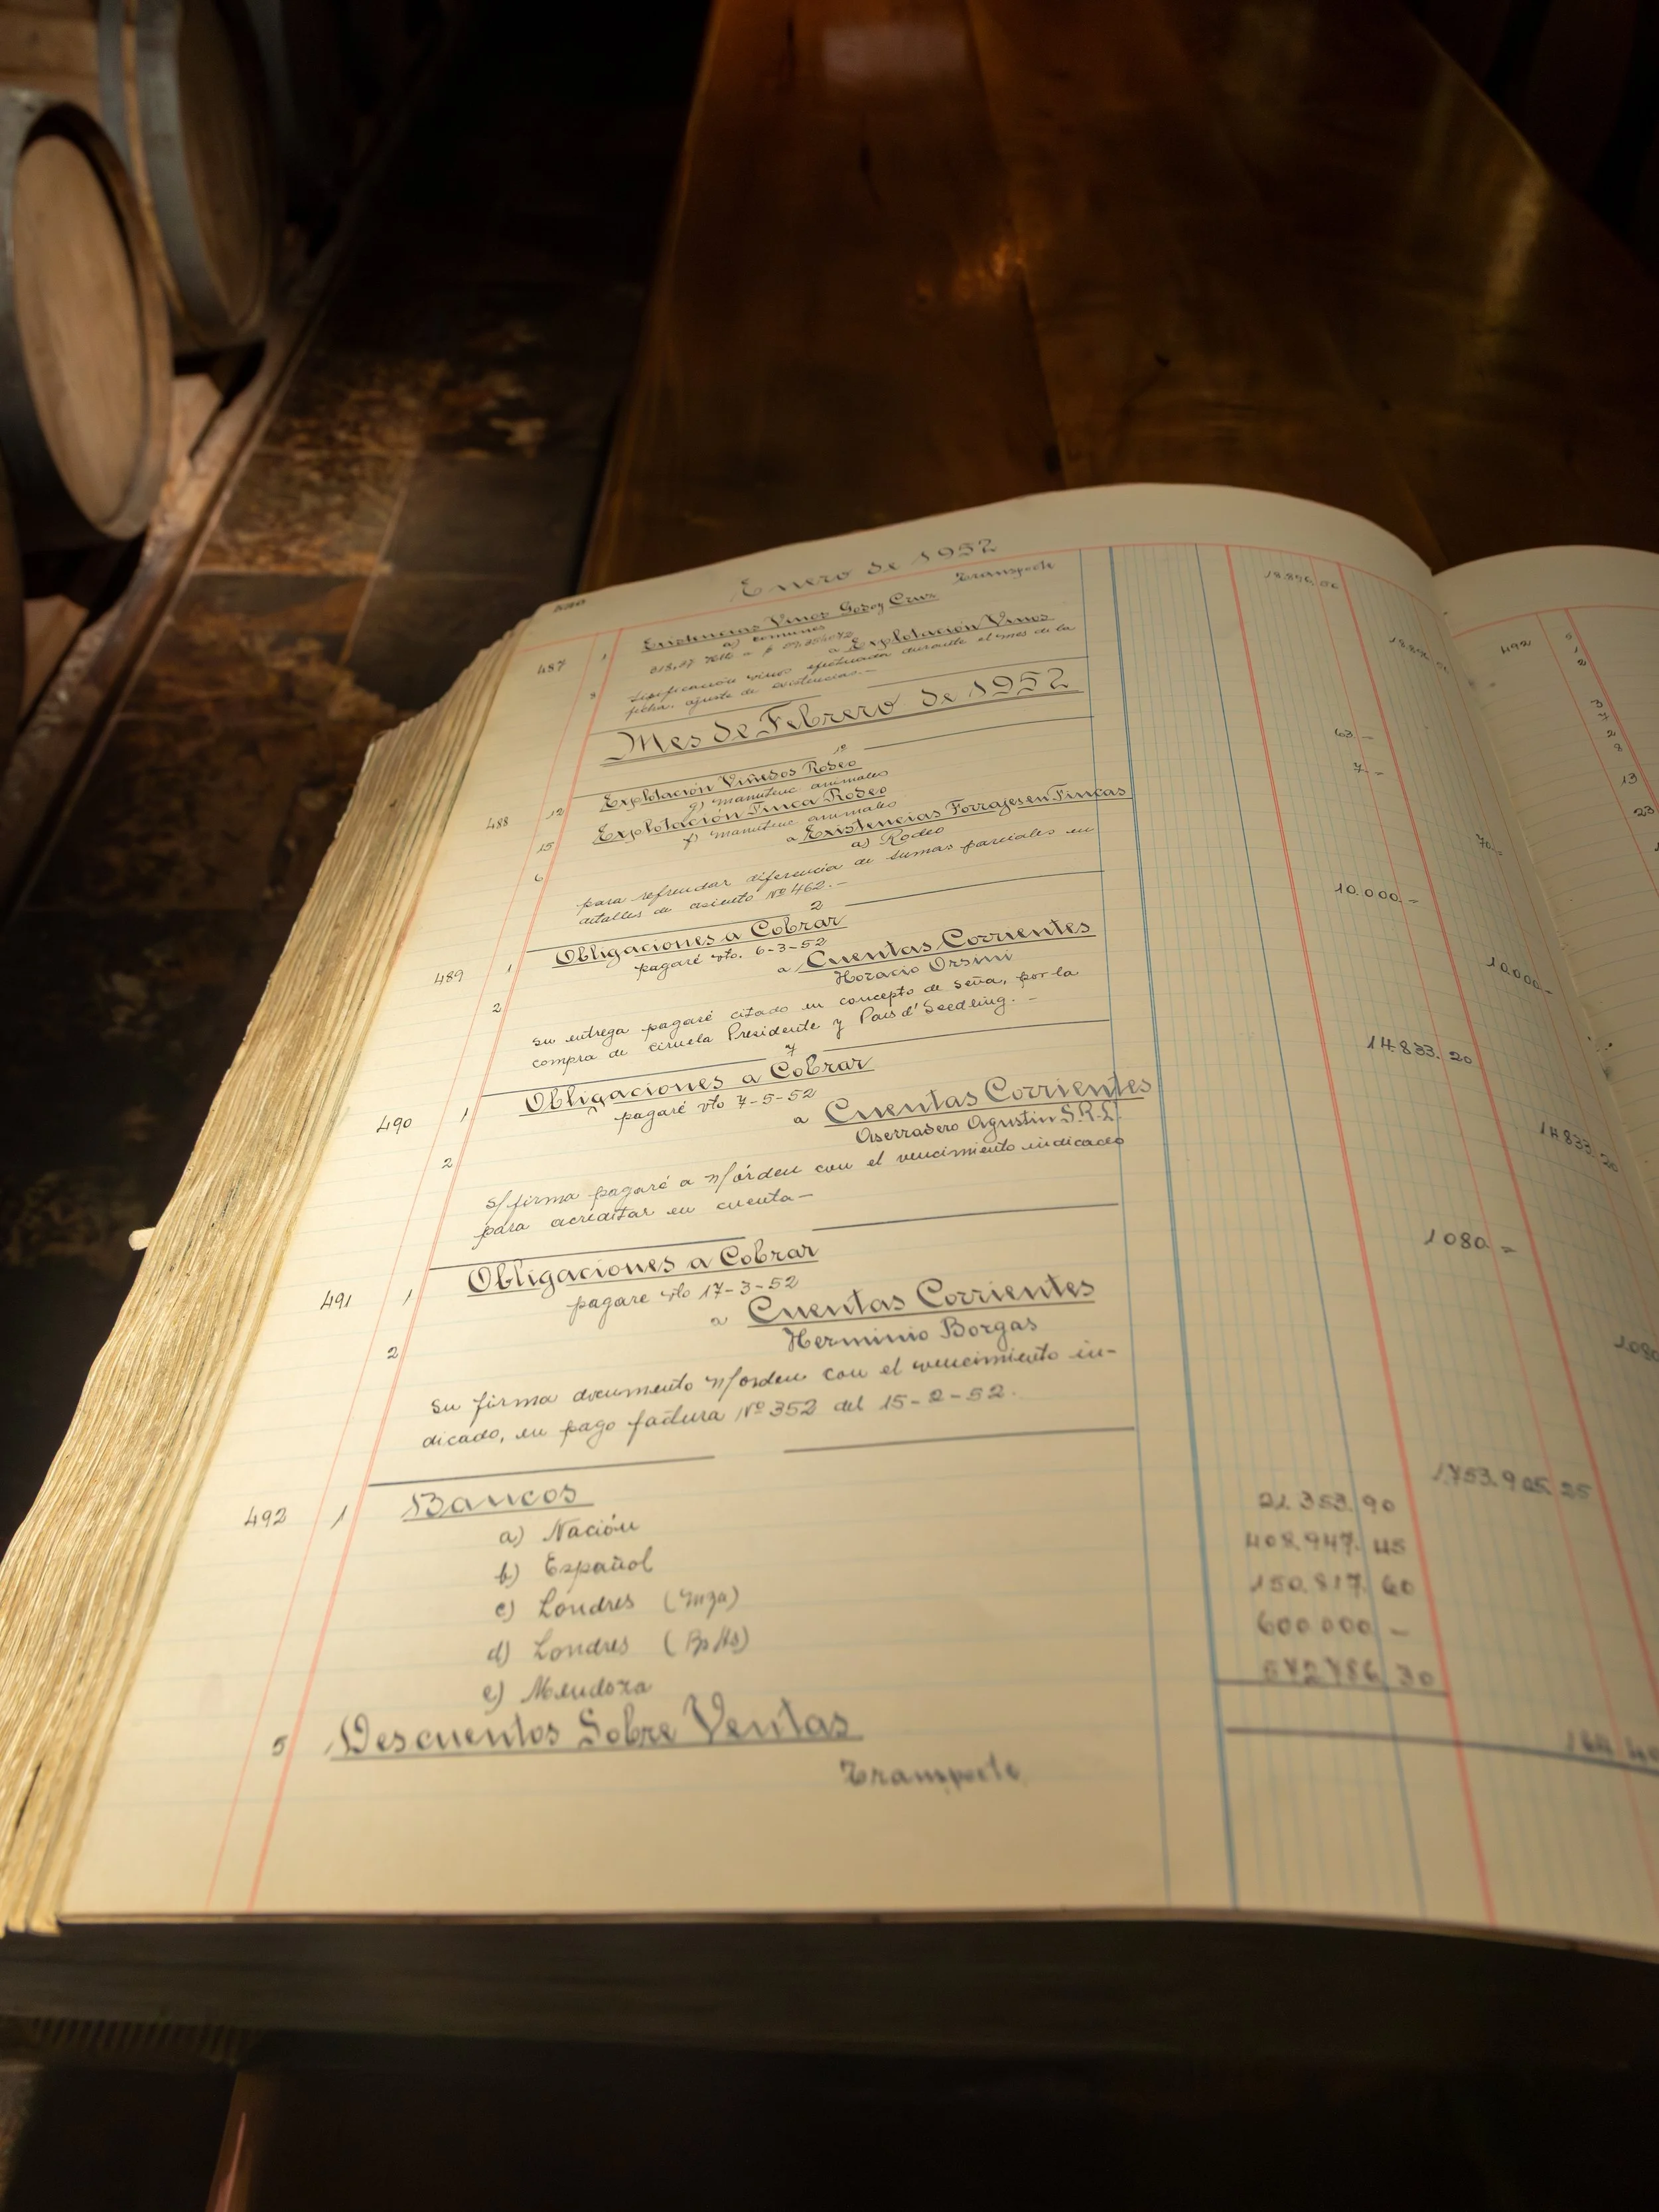 Enero de 1952
Transporte
18.896,06
487 1 Existencias Vinos Godoy Cruz
a) comunes
a Explotación Vinos
vinos efectuada durante el mes de la
fecha, ajuste de existencias.-
Mes de Febrero de 1952
488 12 Explotación Viñedos Rodeo 63 -
g) manutenc animales
15 Explotación Finca Rodeo 7 -
f) manutenc animales
6 a Existencias Forrajes en Fincas 70 -
a) Rodeo
para refrendar diferencia de sumas parciales en
detalles de asiento Nº 462.-
2
489 1 Obligaciones a Cobrar 10.000 -
pagaré vto. 6-3-52
2 a Cuentas Corrientes 10.000 -
Horacio Orsini
su entrega pagaré citado en concepto de seña, por la
compra de ciruela Presidente y Pais d'Seedling. -
7
490 1 Obligaciones a Cobrar 14.833.20
pagaré vto 7-5-52
2 a Cuentas Corrientes 14.833.20
Aserradero Agustin S.R.L.
s/firma pagaré a n/órden con el vencimiento indicado
para acreditar en cuenta-
491 1 Obligaciones a Cobrar 1080 -
pagare vto 17-3-52
2 a Cuentas Corrientes 1080
Herminio Borgas
su firma documento n/orden con el vencimiento in-
dicado, en pago factura Nº 352 del 15-2-52.
492 1 Bancos 1.753.905.25
a) Nación 21.353.90
b) Español 408.947.45
c) Londres (Mza) 150.817.60
d) Londres (Bs As) 600.000 -
e) Mendoza 572.786.30
5 Descuentos Sobre Ventas
Transporte
492
13
23